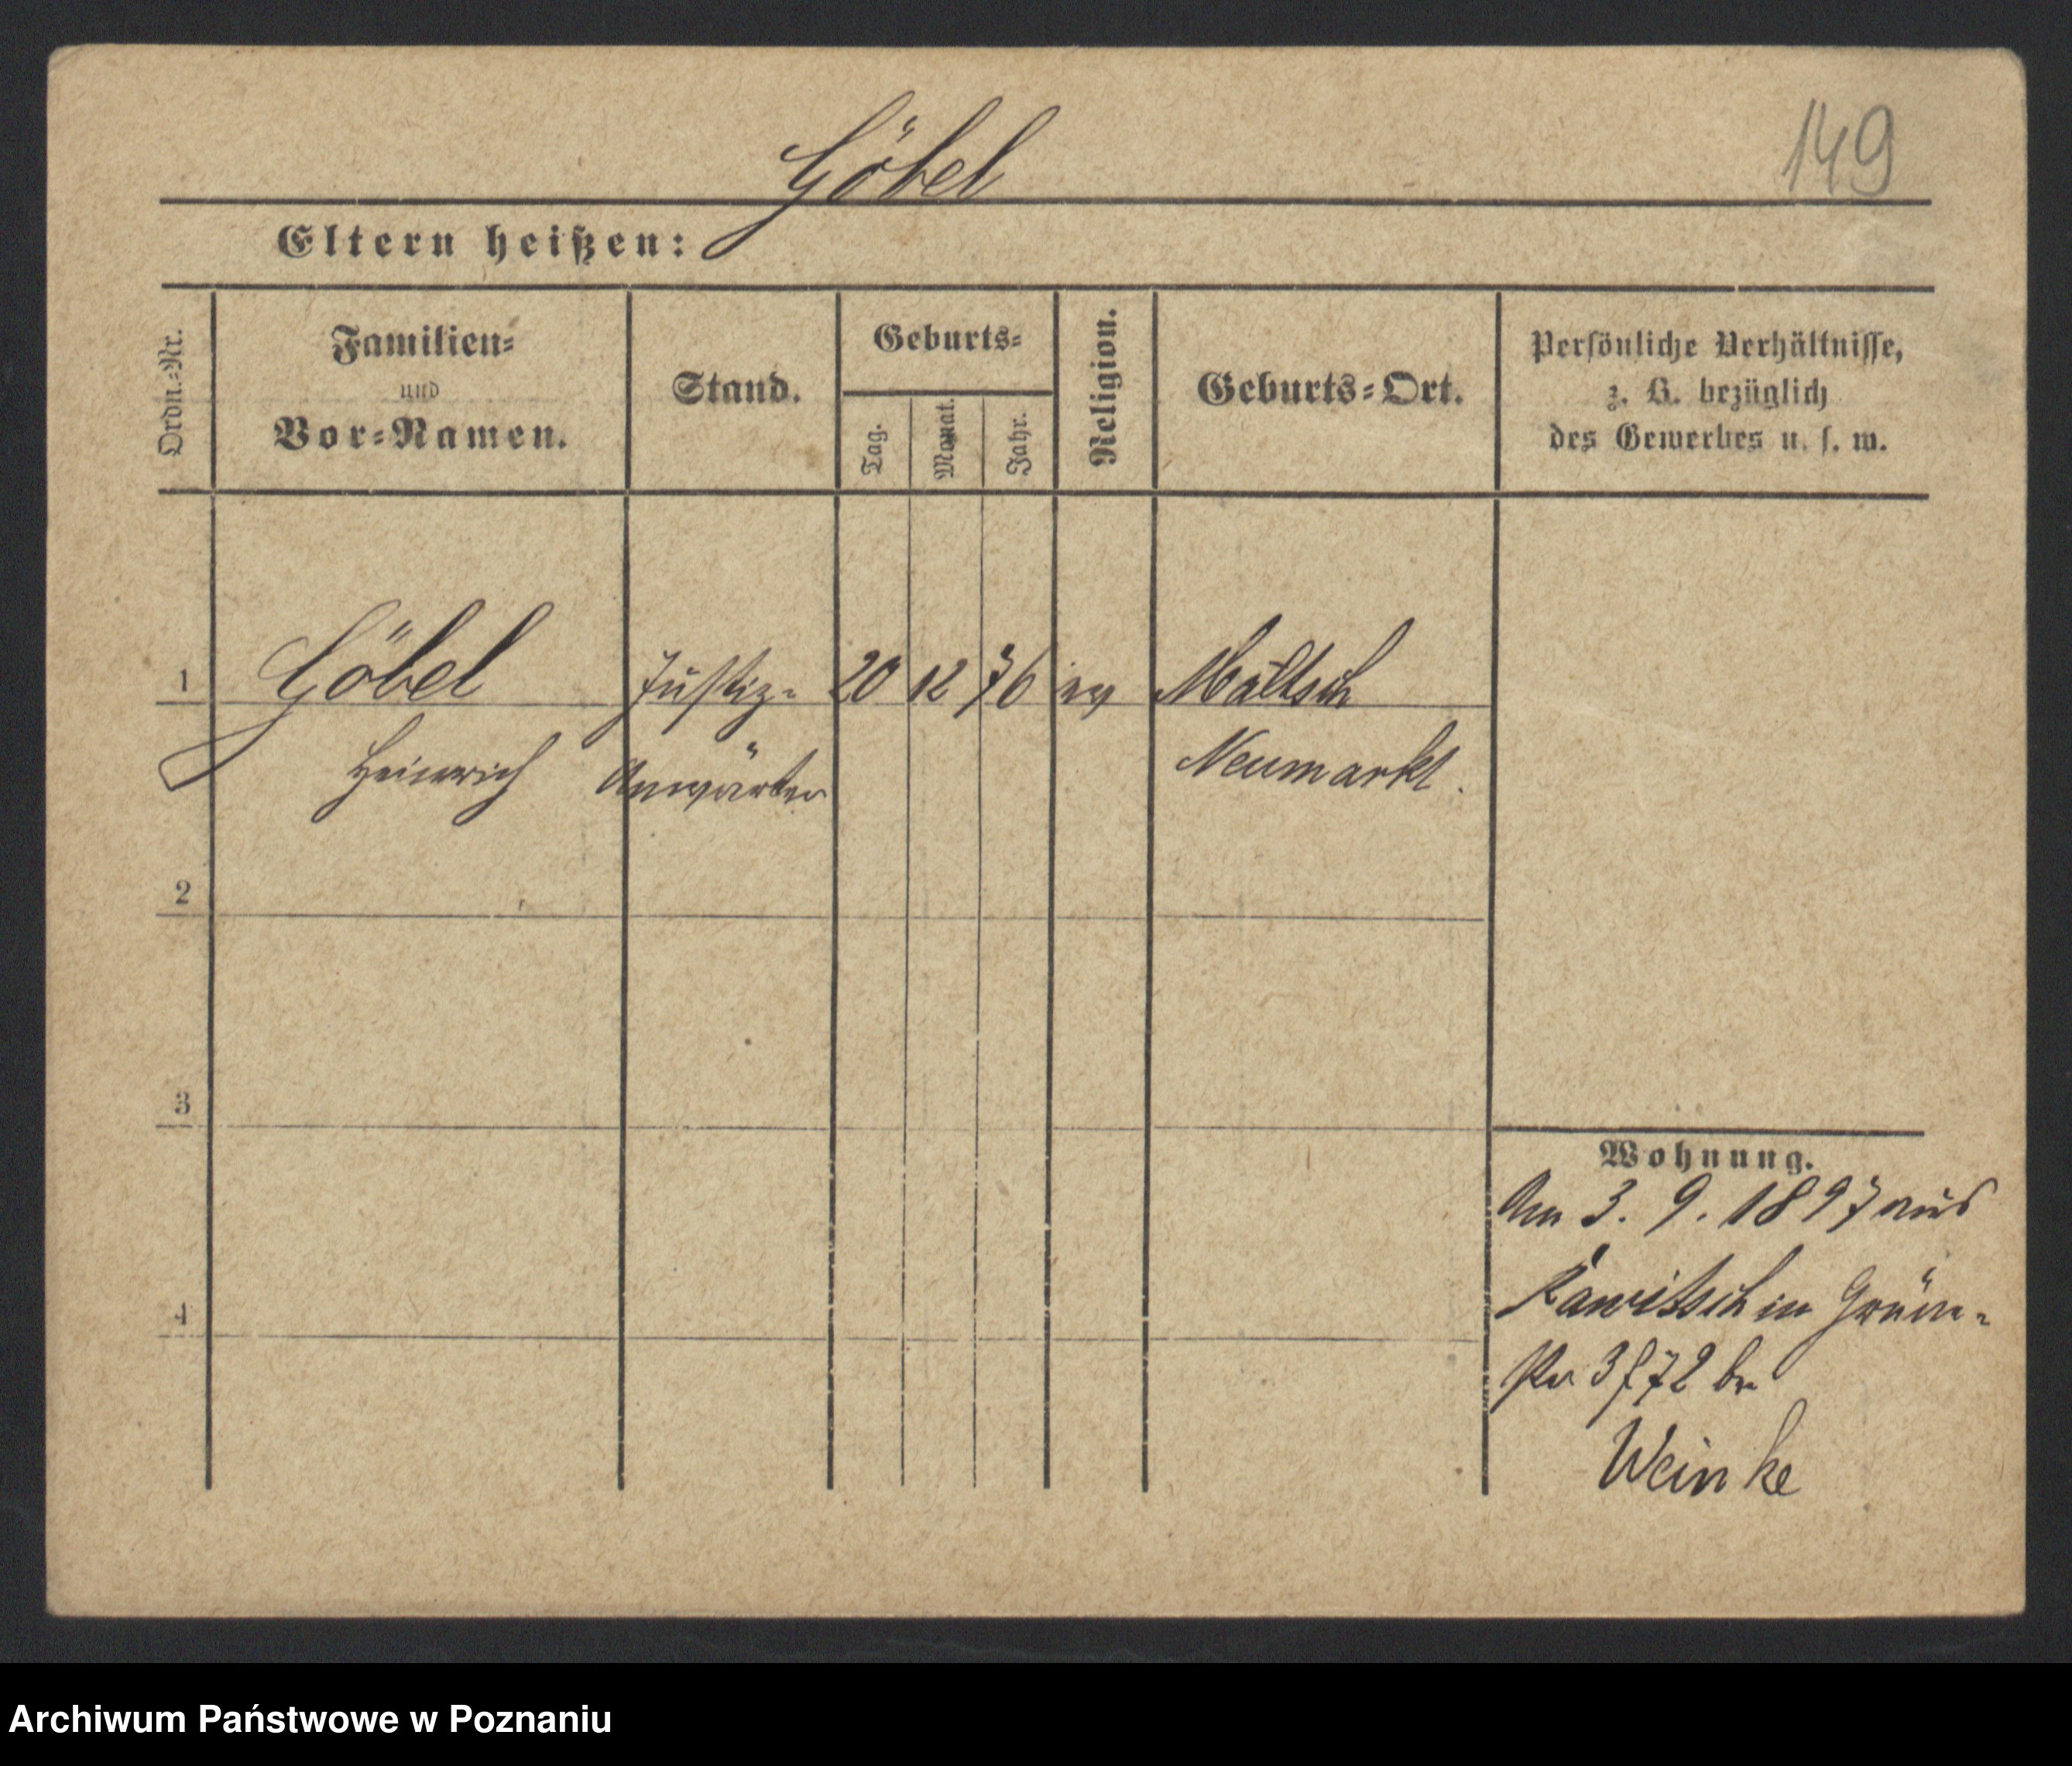 Göbel
149
Eltern heißen:
Ordn.-Nr.
Familien-
und
Vor-Namen.
Stand.
Geburts-
Tag.
Monat.
Jahr.
Religion.
Geburts-Ort.
Persönliche Verhältnisse,
z. B. bezüglich
des Gewerbes u. s. w.
1 Göbel Justiz- 20 12 76 ev Maltsch
Heinrich Anwärter Neumarkt.
2
3
4
Wohnung.
Am 3. 9. 1897 aus
Rawitsch in
72 b.
Weinke
Archiwum Państwowe w Poznaniu